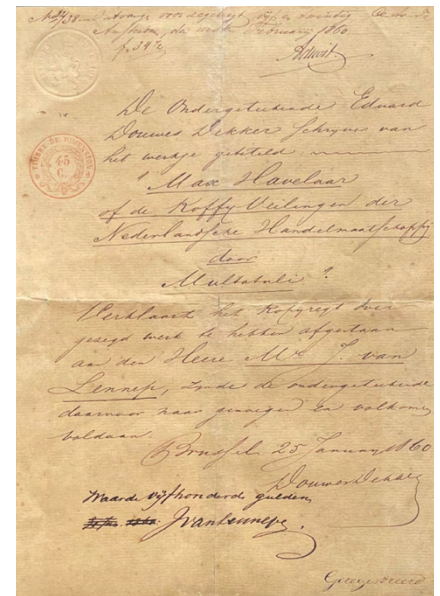 zegelregt vyf en
Amsterdam, den Februarij 1860
f. 39
TIMBRE DE DIMENSION
45
C.
De Ondergeteekende Eduard
Douwes Dekker Schryver van
het werkje getiteld
" Max Havelaar
of de Koffy-Veilingen der
Nederlandsche Handelmaatschappij
door
Multatuli ".
Verklaart het Kopyregt van
gezegd werk te hebben afgestaan
aan den Heere Mr. J. van
Lennep, zynde de ondergeteekende
daarvoor naar genoegen en volkomen
voldaan.
Brussel 25 January 1860
Douwes Dekker
Waarde vyfhonderd gulden
JvanLennep.
Geregistreerd